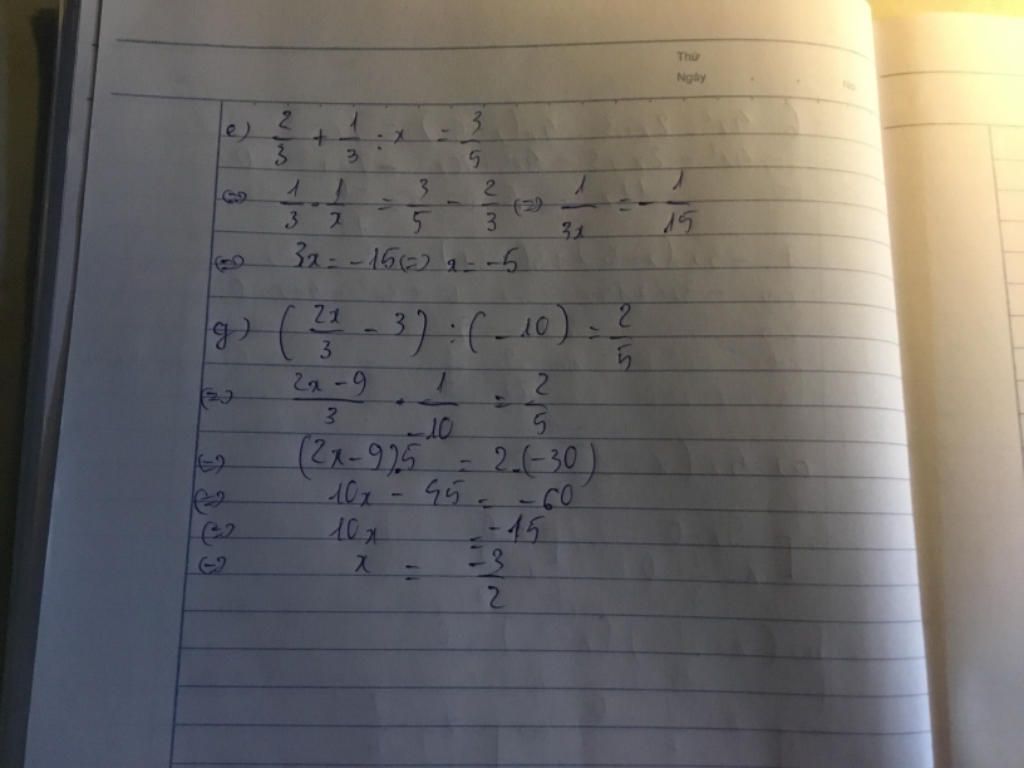 Thứ
Ngày
e) 2/3 + 1/3 : x = 3/5
⇔ 1/3 . 1/x = 3/5 - 2/3 ⇔ 1/3x = - 1/15
⇔ 3x = -15 ⇔ x = -5
g) (2x/3 - 3) : (-10) = 2/5
⇔ 2x-9/3 . 1/-10 = 2/5
⇔ (2x-9).5 = 2.(-30)
⇔ 10x - 45 = -60
⇔ 10x = -15
⇔ x = -3/2